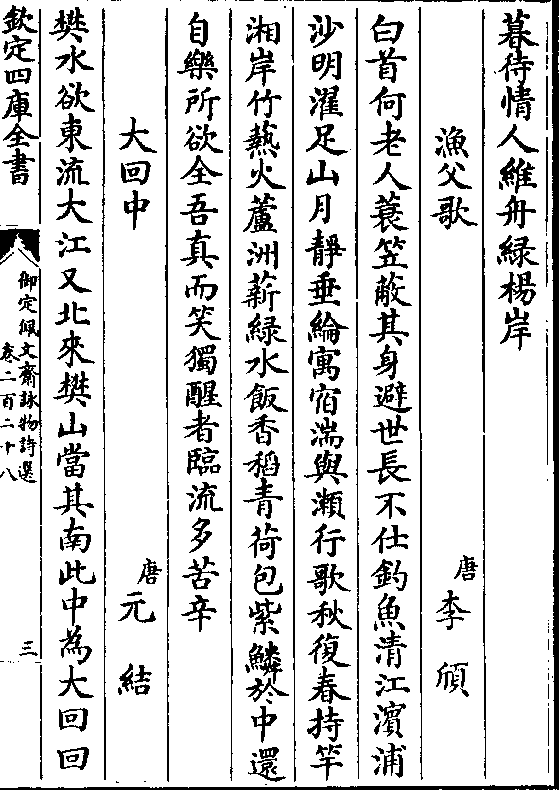 暮待情人維舟緑楊岸
漁父歌
唐李頎
白首何老人蓑笠蔽其身避世長不仕釣魚清江濱浦
沙明濯足山月靜垂綸寓宿湍與瀬行歌秋復春持竿
湘岸竹爇火蘆洲薪緑水飯香稻青荷包紫鱗於中還
自樂所欲全吾真而笑獨醒者臨流多苦辛
大回中
唐元結
樊水欲東流大江又北來樊山當其南此中為大回回
欽定四庫全書
御定佩文齋詠物詩選
卷二百二十八
三